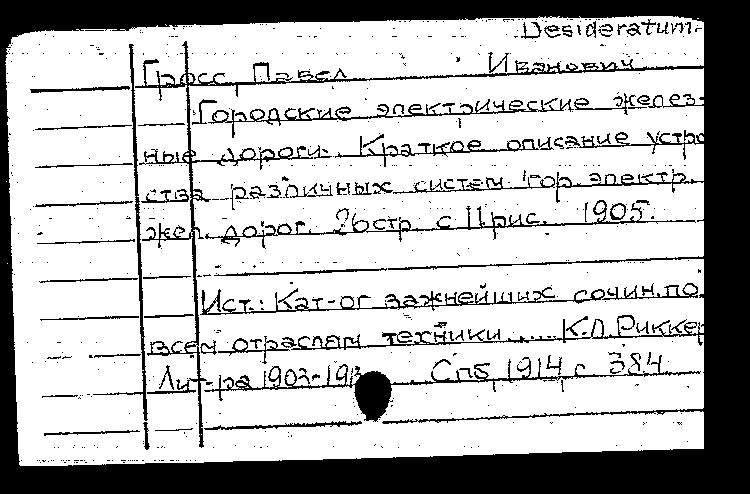 Desideratum.
Гросс, Павел Иванович
Городские электрические желез-
ные дороги. Краткое описание устро
ства различных систем гор. электр.
жел. дорог. 26 стр с 11 рис. 1905.
Ист.: Кат-ог важнейших сочин. по
всем отраслям техники .... К.Л. Риккер
Лит-ра 1903-1913 Спб, 1914, с 384.